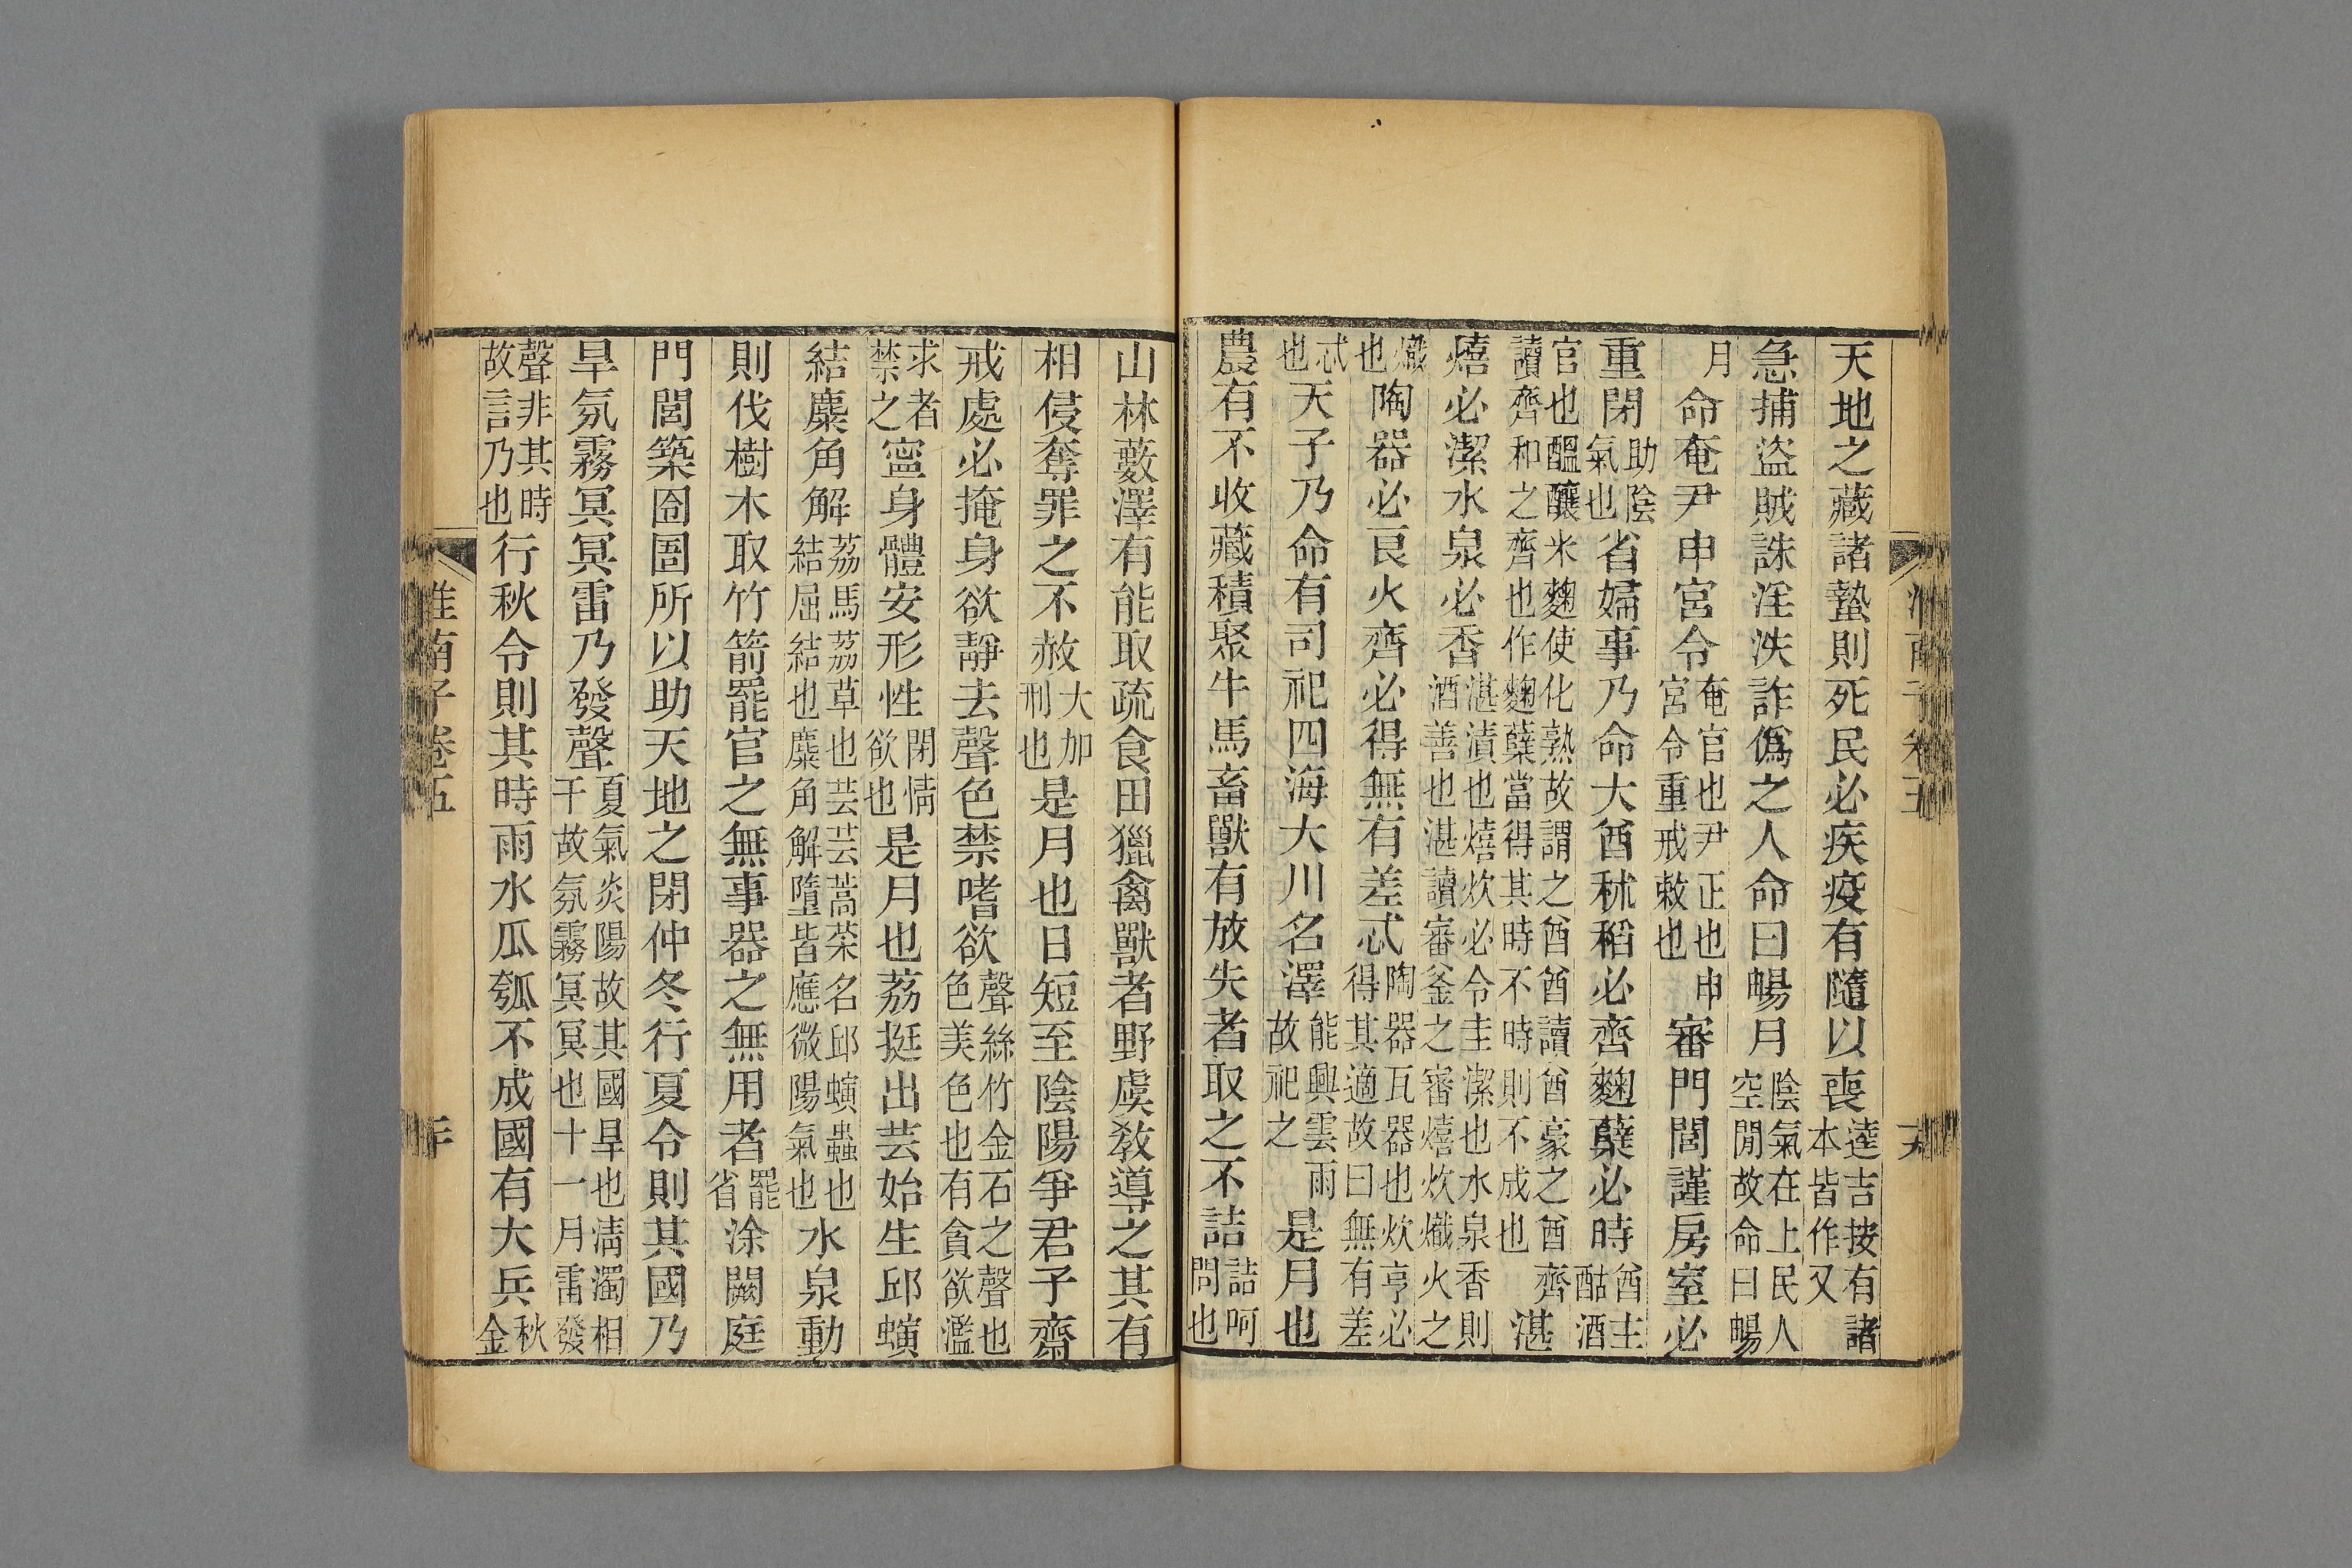 天地之藏諸蟄則死民必疾疫有隨以喪逵吉按有諸本皆作又
急捕盜賊誅淫泆詐僞之人命曰暢月陰氣在上民人空閒故命曰暢
月命奄尹申宮令奄官也尹正也申宮令重戒敕也審門閭謹房室必
重閉助陰氣也省婦事乃命大酋秫稻必齊麴糵必時酋主酤酒
官也醞釀米麴使化熟故謂之酋酋讀酋豪之酋齊讀齊和之齊也作麴糵當得其時不時則不成也湛
熺必潔水泉必香湛漬也熺炊必令圭潔也水泉香則酒善也湛讀審釜之審熺炊熾火之
熾也陶器必良火齊必得無有差忒陶器瓦器也炊亨必得其適故曰無有差
忒也天子乃命有司祀四海大川名澤能興雲雨故祀之是月也
農有不收藏積聚牛馬畜獸有放失者取之不詰詰呵問也
山林藪澤有能取疏食田獵禽獸者野虞敎導之其有
相侵奪罪之不赦大加刑也是月也日短至陰陽爭君子齋
戒處必掩身欲靜去聲色禁嗜欲聲絲竹金石之聲也色美色也有貪欲濫
求者禁之寍身體安形性閉情欲也是月也荔挺出芸始生邱螾
結麋角解荔馬荔草也芸芸蒿菜名邱螾蟲也結屈結也麋角解墮皆應微陽氣也水泉動
則伐樹木取竹箭罷官之無事器之無用者罷省涂闕庭
門閭築囹圄所以助天地之閉仲冬行夏令則其國乃
旱氛霧冥冥雷乃發聲夏氣炎陽故其國旱也淸濁相干故氛霧冥冥也十一月雷發
聲非其時故言乃也行秋令則其時雨水瓜瓠不成國有大兵秋金
淮南子卷五